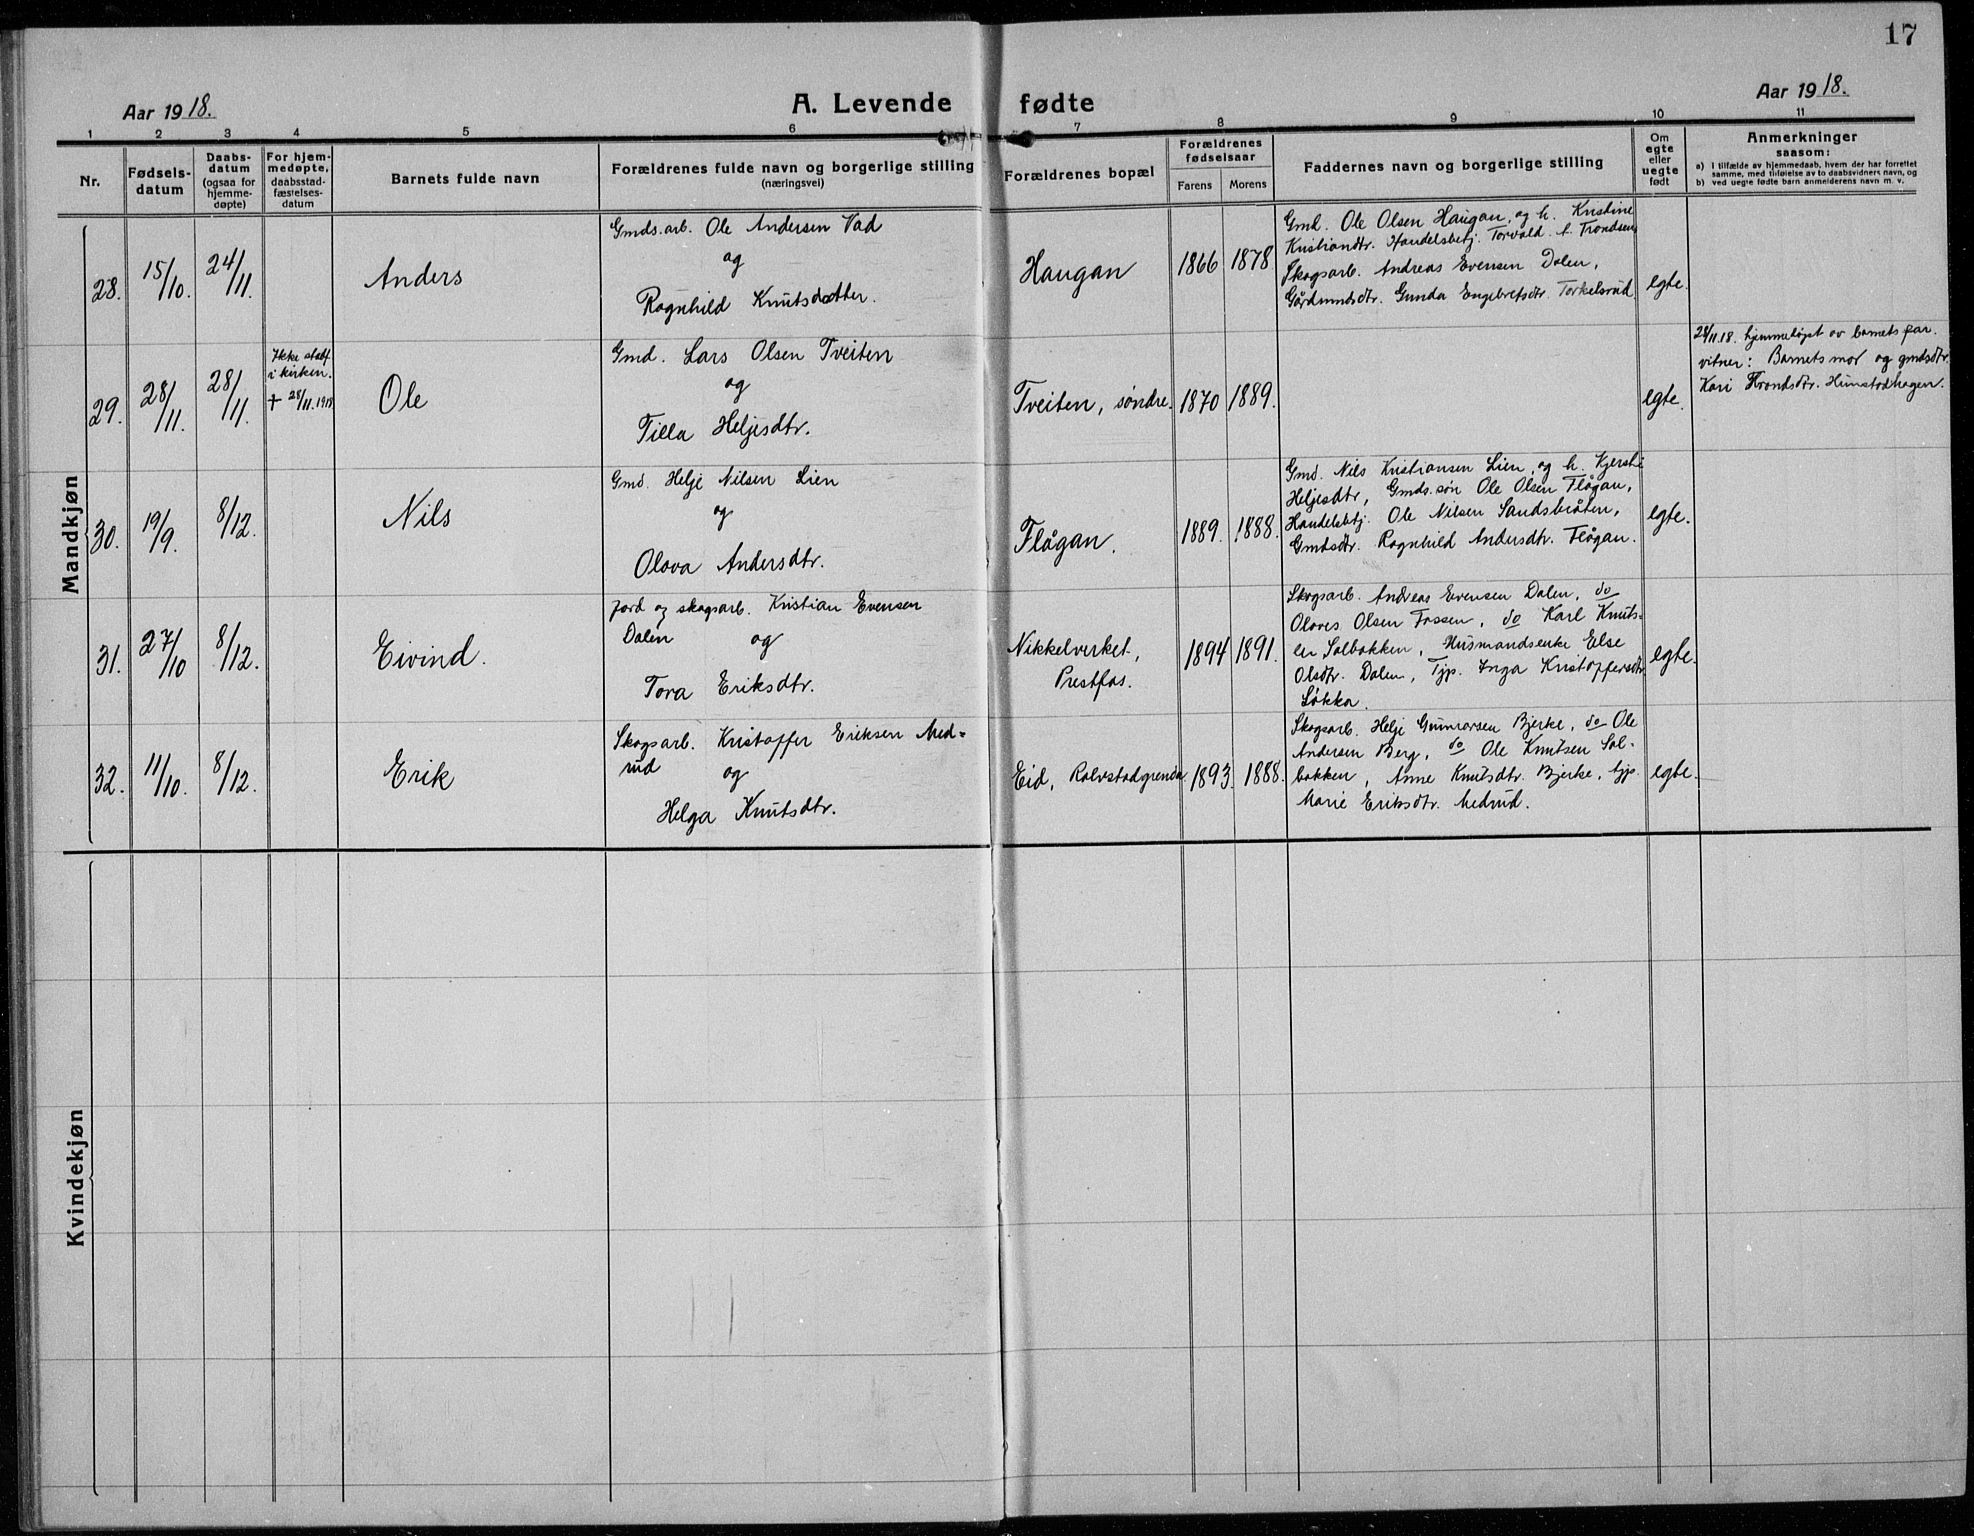 17
Aar 1918.
A. Levende fødte
Aar 1918.
1 2 3 4 5 6 7 8 9 10 11
Nr.
Fødsels-
datum
Daabs-
datum
(ogsaa for
hjemme-
døpte)
For hjem-
medøpte,
daabsstad-
fæstelses-
datum
Barnets fulde navn
Forældrenes fulde navn og borgerlige stilling
(næringsvei)
Forældrenes bopæl
Forældrenes
fødselsaar
Farens Morens
Faddernes navn og borgerlige stilling
Om
egte
eller
uegte
født
Anmerkninger
saasom:
a) i tilfælde av hjemmedaab, hvem der har forrettet
samme, med tilføielse av to daabsvidners navn, og
b) ved uegte fødte barn anmelderens navn m. v.
Mandkjøn
28. 15/10. 24/11. Anders
Gmds.arb. Ole Andersen Vad
og
Ragnhild Knutsdatter.
Haugan 1866 1878
Gmd. Ole Olsen Haugan, og h. Kristine
Kristiandtr. Handelsbetj. Torvald Trondsen,
Skogsarb. Andreas Evensen Dalen,
Gårdmndsdtr. Gunda Engebretsdtr. Torkelsrud
egte.
29. 28/11. 28/11.
Ikke stadf.
i kirken.
+ 28/11.1918
Ole
Gmd. Lars Olsen Tveiten
og
Tilla Heljesdtr.
Tveiten, søndre. 1870 1889.
egte.
28/11.18. hjemmedøpt av barnets far.
vitner: Barnets mor og gmdsdtr.
Kari Trondsdtr. Himstadhagen.
30. 19/9. 8/12. Nils
Gmd. Helje Nilsen Lien
og
Olava Andersdtr.
Flågan. 1889. 1888.
Gmd. Nils Kristiansen Lien, og h. Kjersti
Heljesdtr, Gmds.søn Ole Olsen Flågan,
Handelsbetj. Ole Nilsen Sandsbråten,
Gmdsdtr. Ragnhild Andersdtr. Flågan.
egte.
31. 27/10 8/12. Eivind.
Jord og skogsarb. Kristian Evensen
Dalen og
Tora Eriksdtr.
Nikkelverket,
Prestfos.
1894 1891.
Skogsarb. Andreas Evensen Dalen, do
Olaves Olsen Fossen, do Karl Knuts-
en Solbakken, Husmandsenke Else
Olsdtr. Dalen, Tjp. Inga Kristoffersdtr
Løkka.
egte.
32. 11/10. 8/12. Erik
Skogsarb. Kristoffer Eriksen Med-
rud og
Helga Knutsdtr.
Eid, Ralvstadgrenda. 1893. 1888.
Skogsarb. Helje Gunnarsen Bjerke, do Ole
Andersen Berg, do Ole Knutsen Sol-
bakken, Anne Knutsdtr. Bjerke, tjp.
Marie Eriksdtr. Medrud.
egte.
Kvindekjøn